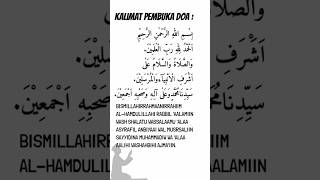 KALIMAT PEMBUKA DOA :
بِسْمِ اللَّهِ الرَّحْمٰنِ الرَّحِيْمِ
اَلْحَمْدُ لِلّٰهِ رَبِّ الْعٰلَمِيْنَ
وَالصَّلَاةُ وَالسَّلَامُ عَلَى
اَشْرَفِ الْاَنْبِيَاءِ وَالْمُرْسَلِيْنَ.
سَيِّدِنَا مُحَمَّدٍ وَعَلَى اٰلِهِ وَصَحْبِهِ اَجْمَعِيْنَ.
BISMILLAHIRRAHMAANIRRAHIIM
AL-HAMDULILLAHI RABBIL 'AALAMIIN
WASH SHALATU WASSALAAMU 'ALAA
ASYRAFIL ANBIYAAI WAL MURSALIIN
SAYYIDINA MUHAMMADIW WA 'ALAA
AALIHI WASHAHBIHI AJMAYIIN.
AL-HAMDULILLAHI